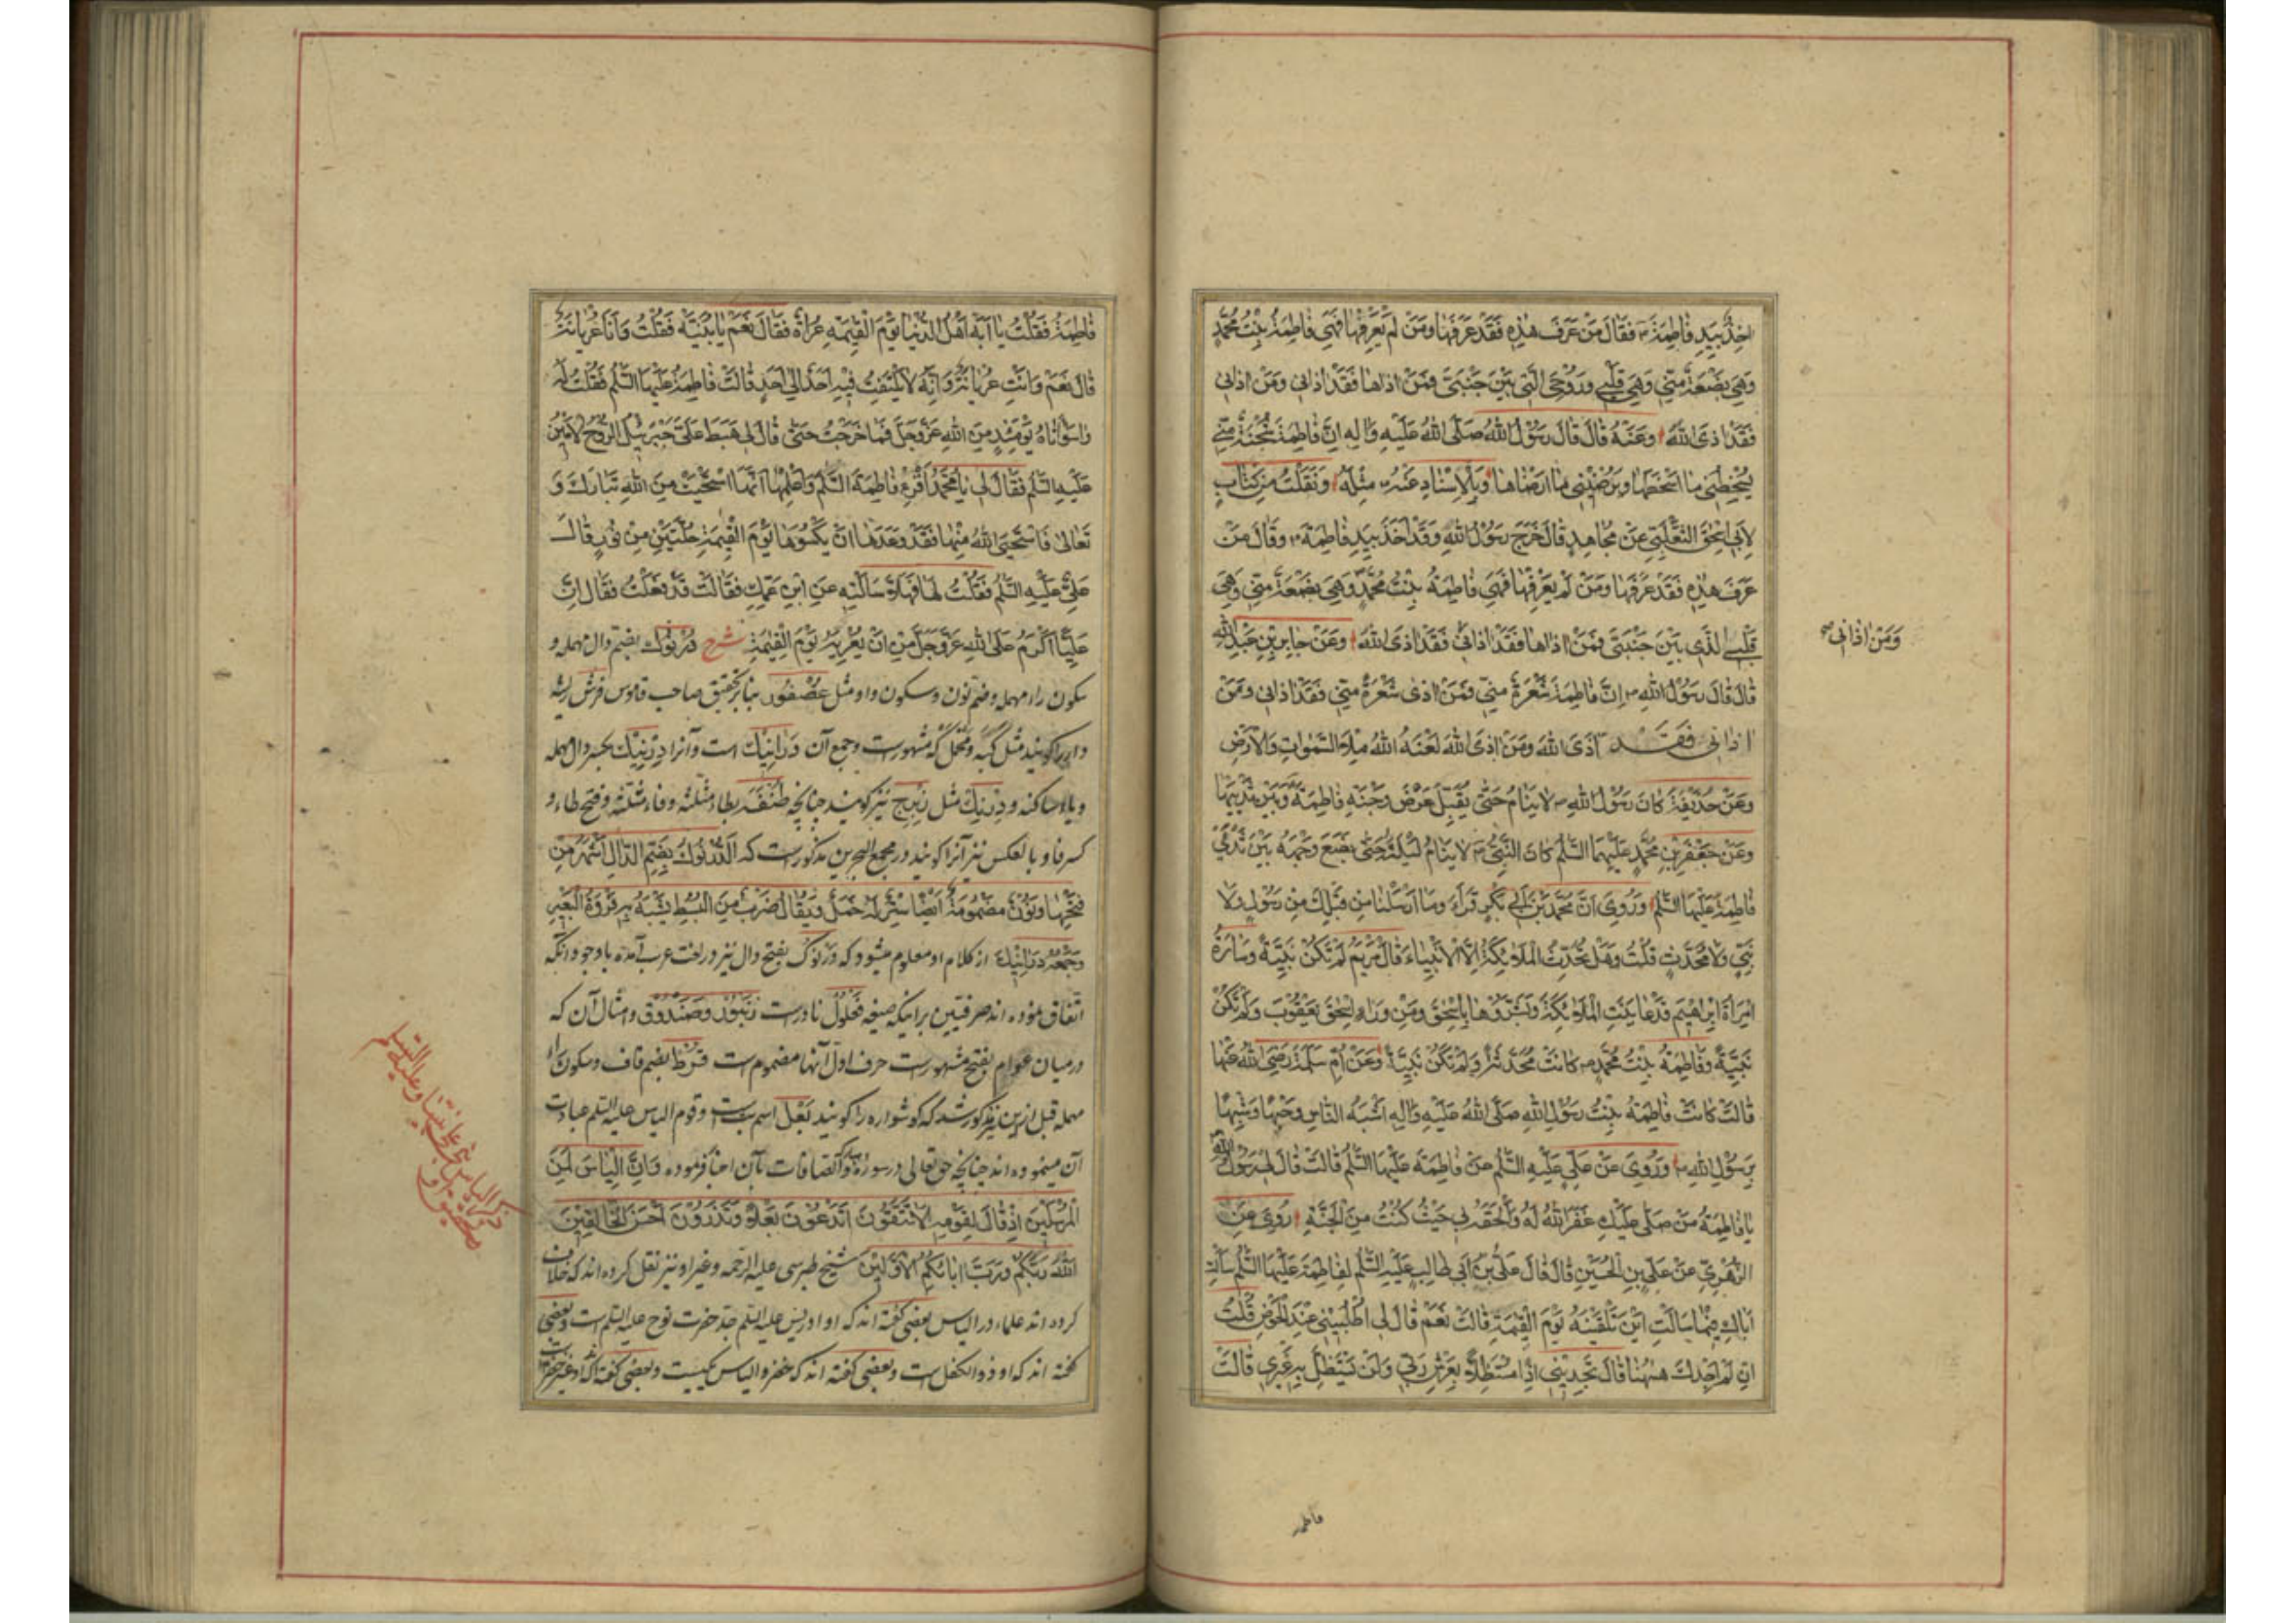 اخِذٌ بِيَدِ فَاطِمَةَ ۴ فَقَالَ مَنْ عَرَفَ هٰذِهِ فَقَدْ عَرَفَهَا وَمَنْ لَمْ يَعْرِفْهَا فَهِيَ فَاطِمَةُ بِنْتُ مُحَمَّدٍ
وَهِيَ بَضْعَةٌ مِنِّي وَهِيَ قَلْبِي وَرُوحِيَ الَّتِي بَيْنَ جَنْبَيَّ فَمَنْ اذَاهَا فَقَدْ اذَانِي وَمَنْ اذَانِي
فَقَدْ اذَى اللهَ وَعَنْهُ قَالَ قَالَ رَسُولُ اللهِ صَلَّى اللهُ عَلَيْهِ وَالِهِ اِنَّ فَاطِمَةَ شُجْنَةٌ مِنِّي
يُسْخِطُنِي مَا اَسْخَطَهَا وَيُرْضِينِي مَا اَرْضَاهَا وَبِالْاِسْنَادِ عَنْهُ ۴ مِثْلُهُ وَنَقَلْتُ مِنْ كِتَابٍ
لِاَبِي اِسْحٰقَ الثَّعْلَبِيِّ عَنْ مُجَاهِدٍ قَالَ خَرَجَ رَسُولُ اللهِ وَقَدْ اَخَذَ بِيَدِ فَاطِمَةَ ۴ وَقَالَ مَنْ
عَرَفَ هٰذِهِ فَقَدْ عَرَفَهَا وَمَنْ لَمْ يَعْرِفْهَا فَهِيَ فَاطِمَةُ بِنْتُ مُحَمَّدٍ وَهِيَ بَضْعَةٌ مِنِّي وَهِيَ
قَلْبِي الَّذِي بَيْنَ جَنْبَيَّ فَمَنْ اذَاهَا فَقَدْ اذَانِي فَقَدْ اذَى اللهَ وَعَنْ جَابِرِ بْنِ عَبْدِ اللهِ
وَمَنْ اذَانِي صح
قَالَ قَالَ رَسُولُ اللهِ ص اِنَّ فَاطِمَةَ شَعْرَةٌ مِنِّي فَمَنْ اذَى شَعْرَةً مِنِّي فَقَدْ اذَانِي وَمَنْ
اذَانِي فَقَدْ آذَى اللهَ وَمَنْ اذَى اللهَ لَعَنَهُ اللهُ مِلْءَ السَّمٰوَاتِ وَالْاَرْضِ
وَعَنْ حُذَيْفَةَ كَانَ رَسُولُ اللهِ ص لَا يَنَامُ حَتّٰى يُقَبِّلَ عَرْضَ وَجْنَةِ فَاطِمَةَ وَبَيْنَ ثَدْيَيْهَا
وَعَنْ جَعْفَرِ بْنِ مُحَمَّدٍ عَلَيْهِمَا السَّلٰمُ كَانَ النَّبِيُّ ص لَا يَنَامُ لَيْلَتَهُ حَتّٰى يَضَعَ وَجْهَهُ بَيْنَ ثَدْيَيْ
فَاطِمَةَ عَلَيْهَا السَّلٰمُ وَرُوِيَ اَنَّ مُحَمَّدَ بْنَ اَبِي بَكْرٍ قَرَاَ وَمَا اَرْسَلْنَا مِنْ قَبْلِكَ مِنْ رَسُولٍ وَلَا
نَبِيٍّ وَلَا مُحَدَّثٍ قُلْتُ وَهَلْ تُحَدِّثُ الْمَلٰٓئِكَةُ اِلَّا الْاَنْبِيَاءَ قَالَ مَرْيَمُ لَمْ تَكُنْ نَبِيَّةً وَسَارَةُ
امْرَاَةُ اِبْرٰهِيمَ قَدْ عَايَنَتِ الْمَلٰٓئِكَةَ وَبَشَّرُوهَا بِاِسْحٰقَ وَمِنْ وَرَاءِ اِسْحٰقَ يَعْقُوبَ وَلَمْ تَكُنْ
نَبِيَّةً وَفَاطِمَةُ بِنْتُ مُحَمَّدٍ ص كَانَتْ مُحَدَّثَةً وَلَمْ تَكُنْ نَبِيَّةً وَعَنْ اُمِّ سَلَمَةَ رَضِيَ اللهُ عَنْهَا
قَالَتْ كَانَتْ فَاطِمَةُ بِنْتُ رَسُولِ اللهِ صَلَّى اللهُ عَلَيْهِ وَالِهِ اَشْبَهَ النَّاسِ وَجْهًا وَشَبَهًا
بِرَسُولِ اللهِ ص وَرُوِيَ عَنْ عَلِيٍّ عَلَيْهِ السَّلٰمُ عَنْ فَاطِمَةَ عَلَيْهَا السَّلٰمُ قَالَتْ قَالَ لِي رَسُولُ اللهِ
يَا فَاطِمَةُ مَنْ صَلّٰى عَلَيْكِ غَفَرَ اللهُ لَهُ وَاَلْحَقَهُ بِي حَيْثُ كُنْتُ مِنَ الْجَنَّةِ رُوِيَ عَنِ
الزُّهْرِيِّ عَنْ عَلِيِّ بْنِ الْحُسَيْنِ قَالَ قَالَ عَلِيُّ بْنُ اَبِي طَالِبٍ عَلَيْهِ السَّلٰمُ لِفَاطِمَةَ عَلَيْهَا السَّلٰمُ سَاَلْتِ
اَبَاكِ فِيمَا سَاَلْتِ اَيْنَ تَلْقَيْنَهُ يَوْمَ الْقِيٰمَةِ قَالَتْ نَعَمْ قَالَ لِي اطْلُبِينِي عِنْدَ الْحَوْضِ قُلْتُ
اِنْ لَمْ اَجِدْكَ هٰهُنَا قَالَ تَجِدِينِي اِذًا مُسْتَظِلًّا بِعَرْشِ رَبِّي وَلَنْ يَسْتَظِلَّ بِهِ غَيْرِي قَالَتْ
فاطمه
فَاطِمَةُ فَقُلْتُ يَا اَبَهْ اَهْلُ الدُّنْيَا يَوْمَ الْقِيٰمَةِ عُرَاةٌ فَقَالَ نَعَمْ يَا بُنَيَّةِ فَقُلْتُ وَاَنَا عُرْيَانَةٌ
قَالَ نَعَمْ وَاَنْتِ عُرْيَانَةٌ وَاِنَّهُ لَا يَلْتَفِتُ فِيهِ اَحَدٌ اِلٰى اَحَدٍ قَالَتْ فَاطِمَةُ عَلَيْهَا السَّلٰمُ فَقُلْتُ لَهُ
وَاسَوْاَتَاهُ يَوْمَئِذٍ مِنَ اللهِ عَزَّ وَجَلَّ فَمَا خَرَجْتُ حَتّٰى قَالَ لِي هَبَطَ عَلَيَّ جَبْرَئِيلُ الرُّوحُ الْاَمِينُ
عَلَيْهِ السَّلٰمُ فَقَالَ لِي يَا مُحَمَّدُ اَقْرِءْ فَاطِمَةَ السَّلٰمَ وَاَعْلِمْهَا اَنَّهَا اسْتَحْيَتْ مِنَ اللهِ تَبَارَكَ وَ
تَعَالٰى فَاسْتَحْيَى اللهُ مِنْهَا فَقَدْ وَعَدَهَا اَنْ يَكْسُوَهَا يَوْمَ الْقِيٰمَةِ حُلَّتَيْنِ مِنْ نُورٍ قَالَ
عَلِيٌّ عَلَيْهِ السَّلٰمُ فَقُلْتُ لَهَا فَهَلَّا سَاَلْتِيهِ عَنِ ابْنِ عَمِّكِ فَقَالَتْ قَدْ فَعَلْتُ فَقَالَ اِنَّ
عَلِيًّا اَكْرَمُ عَلَى اللهِ عَزَّ وَجَلَّ مِنْ اَنْ يُعْرِيَهُ يَوْمَ الْقِيٰمَةِ شرح دُرْنُوك بضم دال مهمله و
سكون راء مهمله وضم نون وسكون واو مثل عُصْفُور بنا بر تحقيق صاحب قاموس فرش ريشه
دار را كويند مثل كبه ومخمل كه مشهورست وجمع آن دَرَانِيك است وآنرا دِرْنِيك بكسر دال مهمله
وياء ساكنه ودِرْنِك مثل زِبْرِج نيز كويند چنانچه طنفسه بطاء مثلثه وفاء مثلثه وفتح طاء و
كسر فا وبالعكس نيز آنرا كويند ودر مجمع البحرين مذكورست كه اَلدُّرْنُوكُ بِضَمِّ الدَّالِ اَشْهَرُ مِنْ
فَتْحِهَا وَنُونٌ مَضْمُومَةٌ اَيْضًا سِتْرٌ لَهُ خَمْلٌ وَيُقَالُ ضَرْبٌ مِنَ الْبُسُطِ يُشَبَّهُ بِهِ فَرْوَةُ الْبَعِيرِ
وَجَمْعُهُ دَرَانِيكُ از كلام او معلوم ميشود كه درنوك بفتح دال نيز در لغت عرب آمده با وجود انكه
اتفاق نموده اند صرفيين بر اينكه صيغه فَعْلُول نادرست زنبور وصندوق وامثال آن كه
در ميان عوام بفتح مشهورست حرف اول آنها مضموم است قُرْط بضم قاف وسكون راء
مهمله قبل ازين نيز مذكور شد كه كوشواره را كويند بَعْل اسم بت است وقوم الياس عليه السلم عبادت
آن مينموده اند چنانچه حق تعالى در سوره وَالصَّافَّات بآن اخبار فرموده وَاِنَّ اِلْيَاسَ لَمِنَ
الْمُرْسَلِينَ اِذْ قَالَ لِقَوْمِهِ اَلَا تَتَّقُونَ اَتَدْعُونَ بَعْلًا وَتَذَرُونَ اَحْسَنَ الْخَالِقِينَ
اللهَ رَبَّكُمْ وَرَبَّ ابَائِكُمُ الْاَوَّلِينَ شيخ طبرسى عليه الرحمه وغير او نيز نقل كرده اند كه خلاف
كرده اند علماء در الياس بعضى كفته اند كه او ادريس عليه السلم جد حضرت نوح عليه السلم است وبعضى
كفته اند كه او ذو الكفل است وبعضى كفته اند كه خضر والياس يكيست وبعضى كفته اند كه او غير خضر است
ذكر الياس على نبينا وعليه السلم